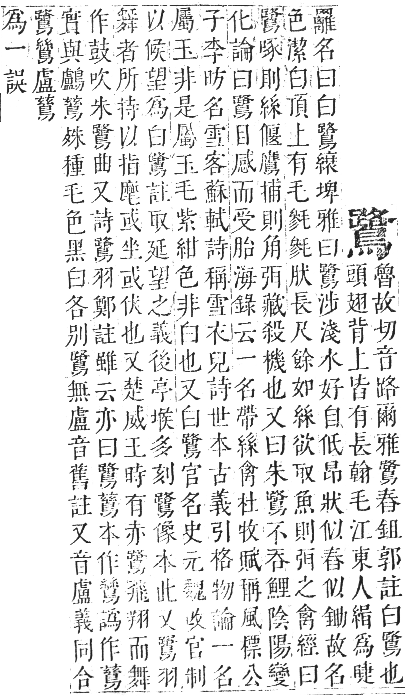 鷺
魯故切音路爾雅鷺舂鉏郭註白鷺也
頭翅背上皆有長翰毛江東人緝為睫
䍦名曰白鷺縗埤雅曰鷺涉淺水好自低昂狀似舂似鋤故名
色潔白頂上有毛毿毿肰長尺餘如絲欲取魚則弭之禽經曰
鷺啄則絲偃鷹捕則角弭藏殺機也又曰朱鷺不吞鯉陰陽變
化論曰鷺目感而受胎海錄云一名帶絲禽杜牧賦稱風標公
子李昉名雪客蘇軾詩稱雪衣兒詩世本古義引格物論一名
屬玉非是屬玉毛紫紺色非白也又白鷺官名史元魏改官制
以候望為白鷺註取延望之義後亭堠多刻鷺像本此又鷺羽
舞者所持以指麾或坐或伏也又楚威王時有赤鷺飛翔而舞
作鼓吹朱鷺曲又詩鷺羽鄭註雖云亦曰鷺鷥本作鷥譌作鷥
實與鸕鷀殊種毛色黑白各別鷺無盧音舊註又音盧義同合
鷺鷥盧鷀
為一誤